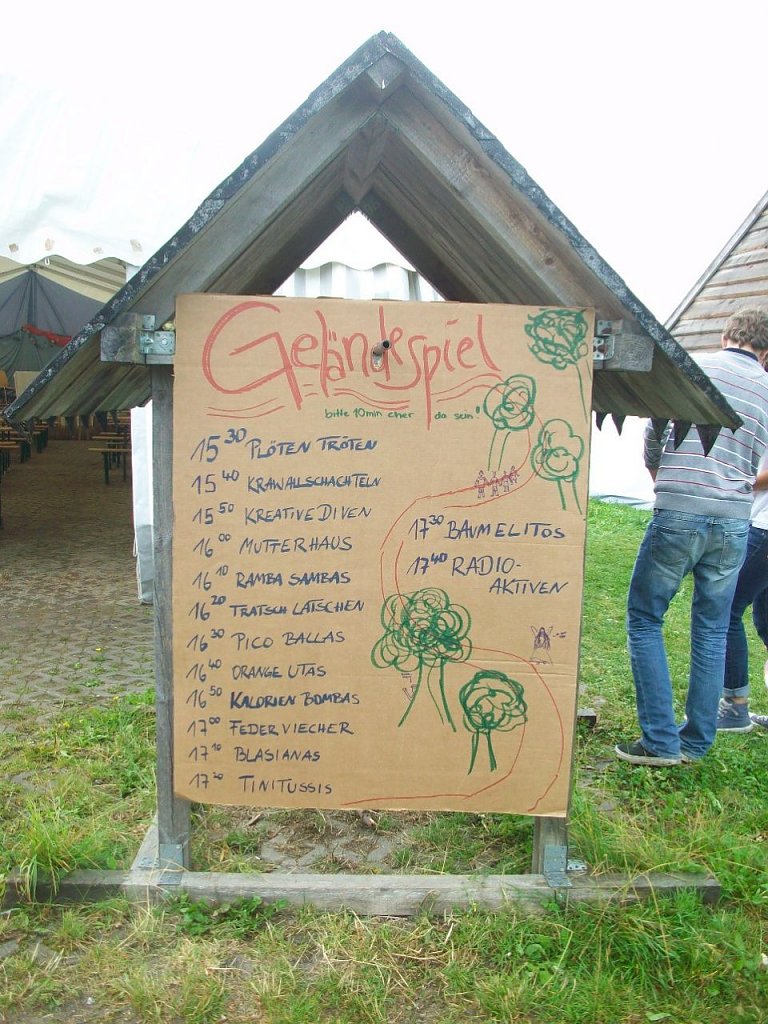 Geländespiel
bitte 10min eher da sein!
15 30 PLÖTEN TRÖTEN
15 40 KRAWALLSCHACHTELN
15 50 KREATIVE DIVEN
16 00 MUTTERHAUS
16 10 RAMBA SAMBAS
16 20 TRATSCH LATSCHEN
16 30 PICO BALLAS
16 40 ORANGE UTAS
16 50 KALORIEN BOMBAS
17 00 FEDER VIECHER
17 10 BLASIANAS
17 20 TINITUSSIS
17 30 BAUMELITOS
17 40 RADIO-
AKTIVEN